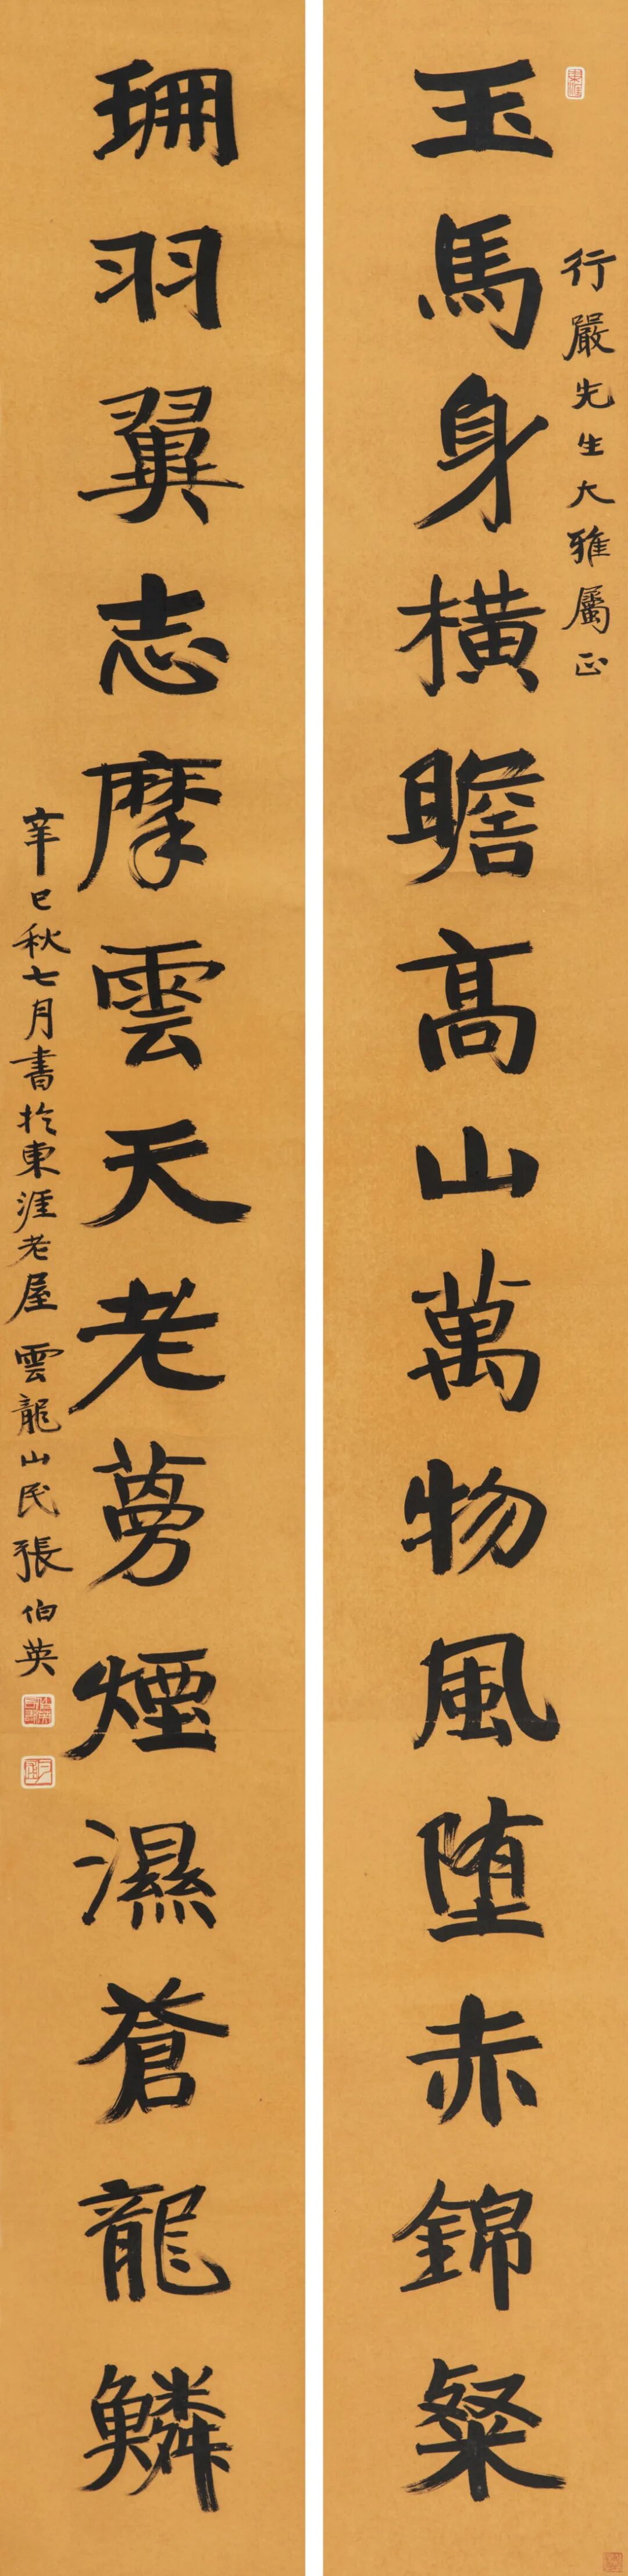 行嚴先生大雅屬正
玉馬身橫瞻高山萬物風堕赤錦粲
珊羽翼志摩雲天老蒡煙濕蒼龍鱗
辛巳秋七月書於東涯老屋 雲龍山民張伯英